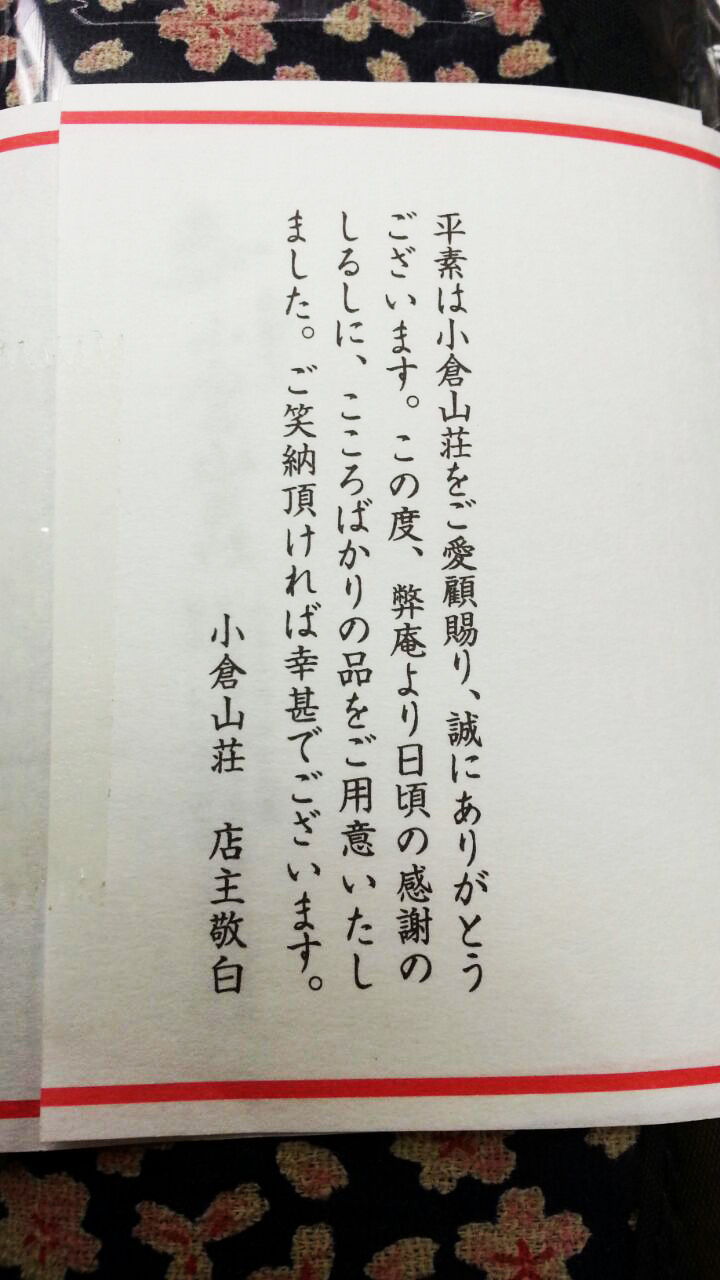 平素は小倉山荘をご愛顧賜り、誠にありがとう
ございます。この度、弊庵より日頃の感謝の
しるしに、こころばかりの品をご用意いたし
ました。ご笑納頂ければ幸甚でございます。
小倉山荘　店主敬白